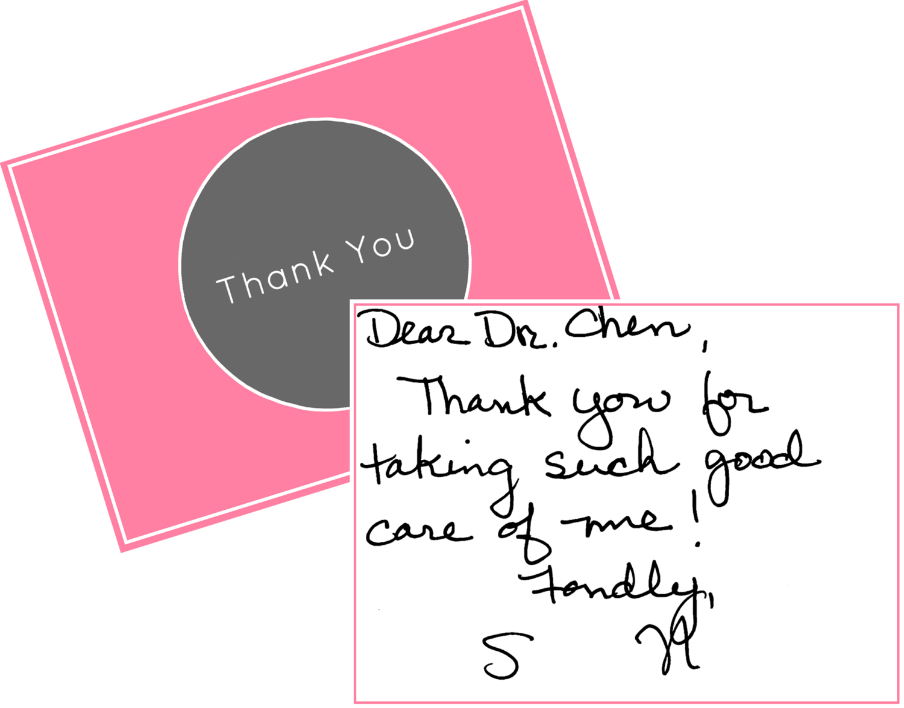 Thank You
Dear Dr. Chen,
Thank you for
taking such good
care of me!
Fondly,
S H